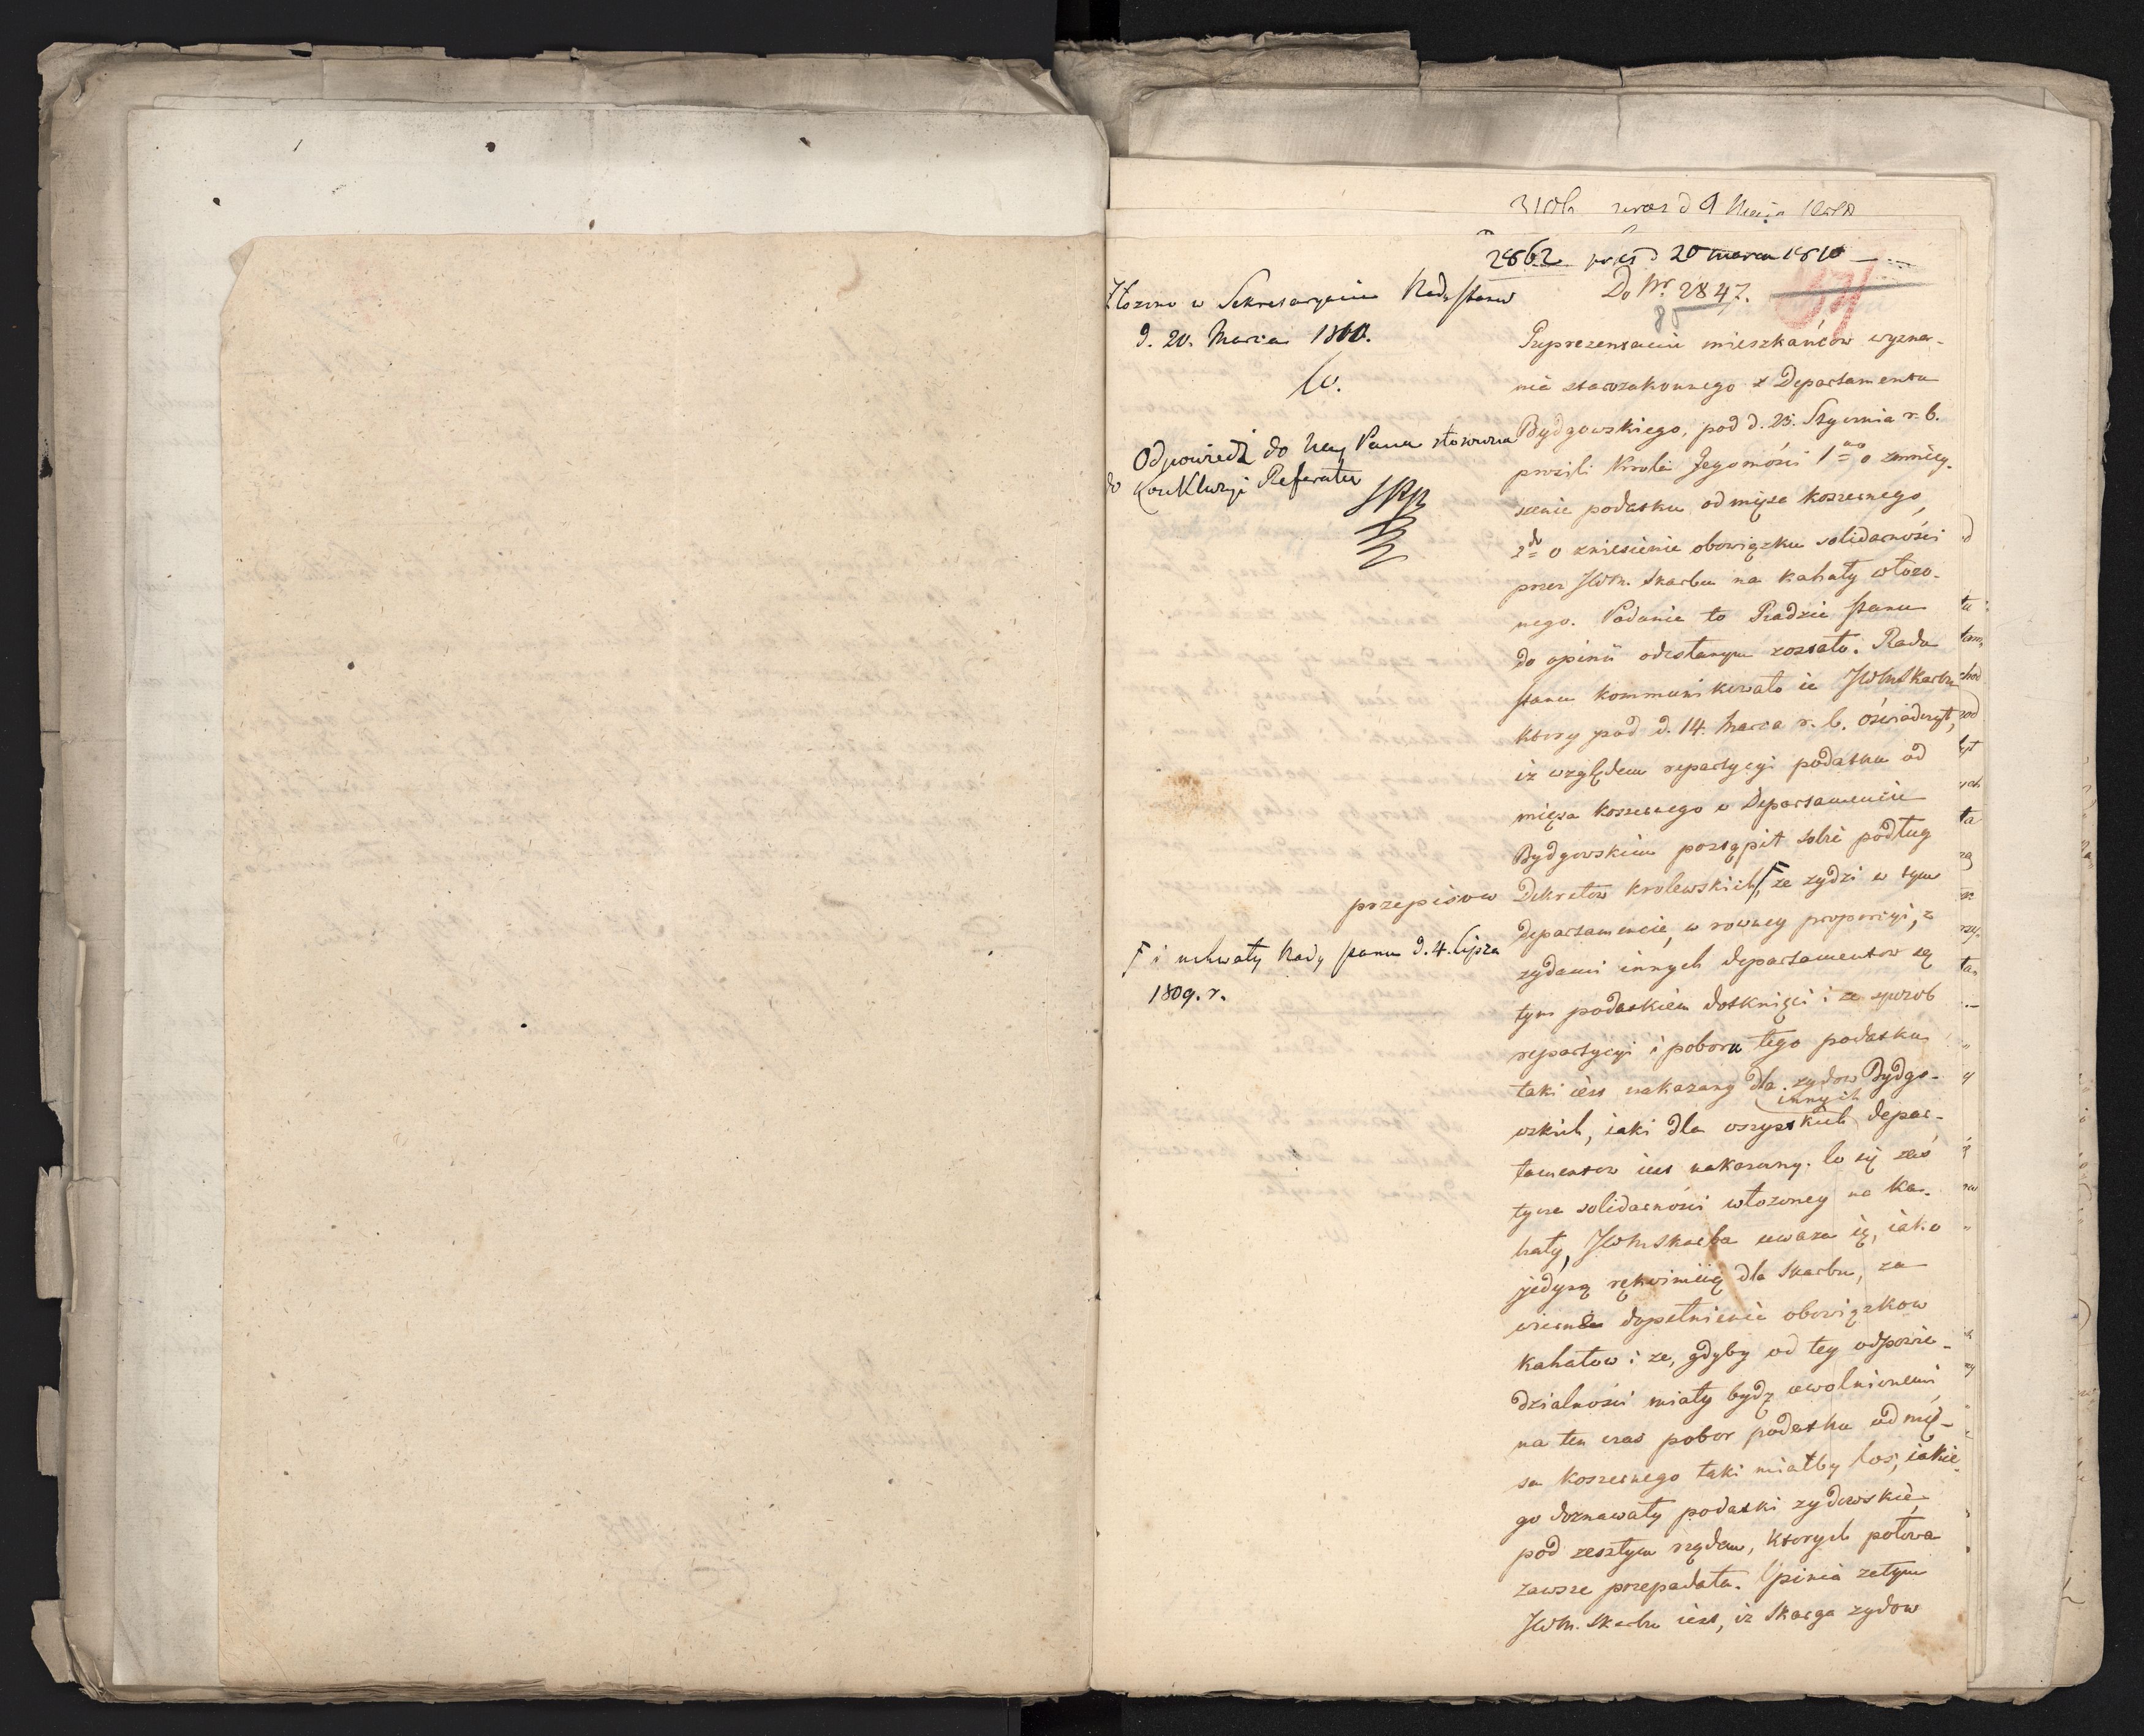 2862 20 marca 1810
Do Nr. 2847.
Złożono w Sekretaryacie Rady Stanu
d. 20. Marca 1810.
Odpowiedź do Pana stosowna
do Konkluzyi Referatu
Reprezentanci mieszkańców wyzna-
nia starozakonnego z Departamentu
Bydgowskiego, pod d. 23. Stycznia r. b.
prosili Króla Jegomości 1mo o zmniey-
szenie podatku od mięsa koszernego,
2do o zniesienie obowiązku solidarności
przez JWM. Skarbu na kahały włożo-
nego. Podanie to Radzie Stanu
do opinii odesłanym zostało. Rada
Stanu kommunikowała ie JWM Skarbu
ktory pod d. 14. Marca r. b. oświadczył,
iż względem repartycyi podatku od
mięsa koszernego w Departamencie
Bydgowskim postąpił sobie podług
przepisow Dekretow Krolewskich, że zydzi w tym
departamencie, w rowney proporcyi, z
F i uchwały Rady Stanu d. 4. lipca
1809. r.
zydami innych departamentow są
tym podatkiem dotknięci i ze sposob
repartycyi i poboru tego podatku
taki iest nakazany dla zydow Bydgo-
innych
wskich, iaki dla wszystkich depar-
tamentow iest nakazany. Co się zaś
tycze solidarności włożoney na ka-
hały, JWM Skarbu uwaza ią, iako
jedyną rękoimię dla Skarbu, za
wierne dopełnienie obowiązkow
kahałow i ze, gdyby od tey odpowie-
dzialności miały bydź uwolnionemi
na ten czas pobor podatku od mię-
sa koszernego taki miałby los, iakie-
go doznawały podatki zydowskie
pod zeszłym rządem, ktorych połowa
zawsze przepadała. Opinia zatym
JWM. Skarbu iest, iz Skarga zydow